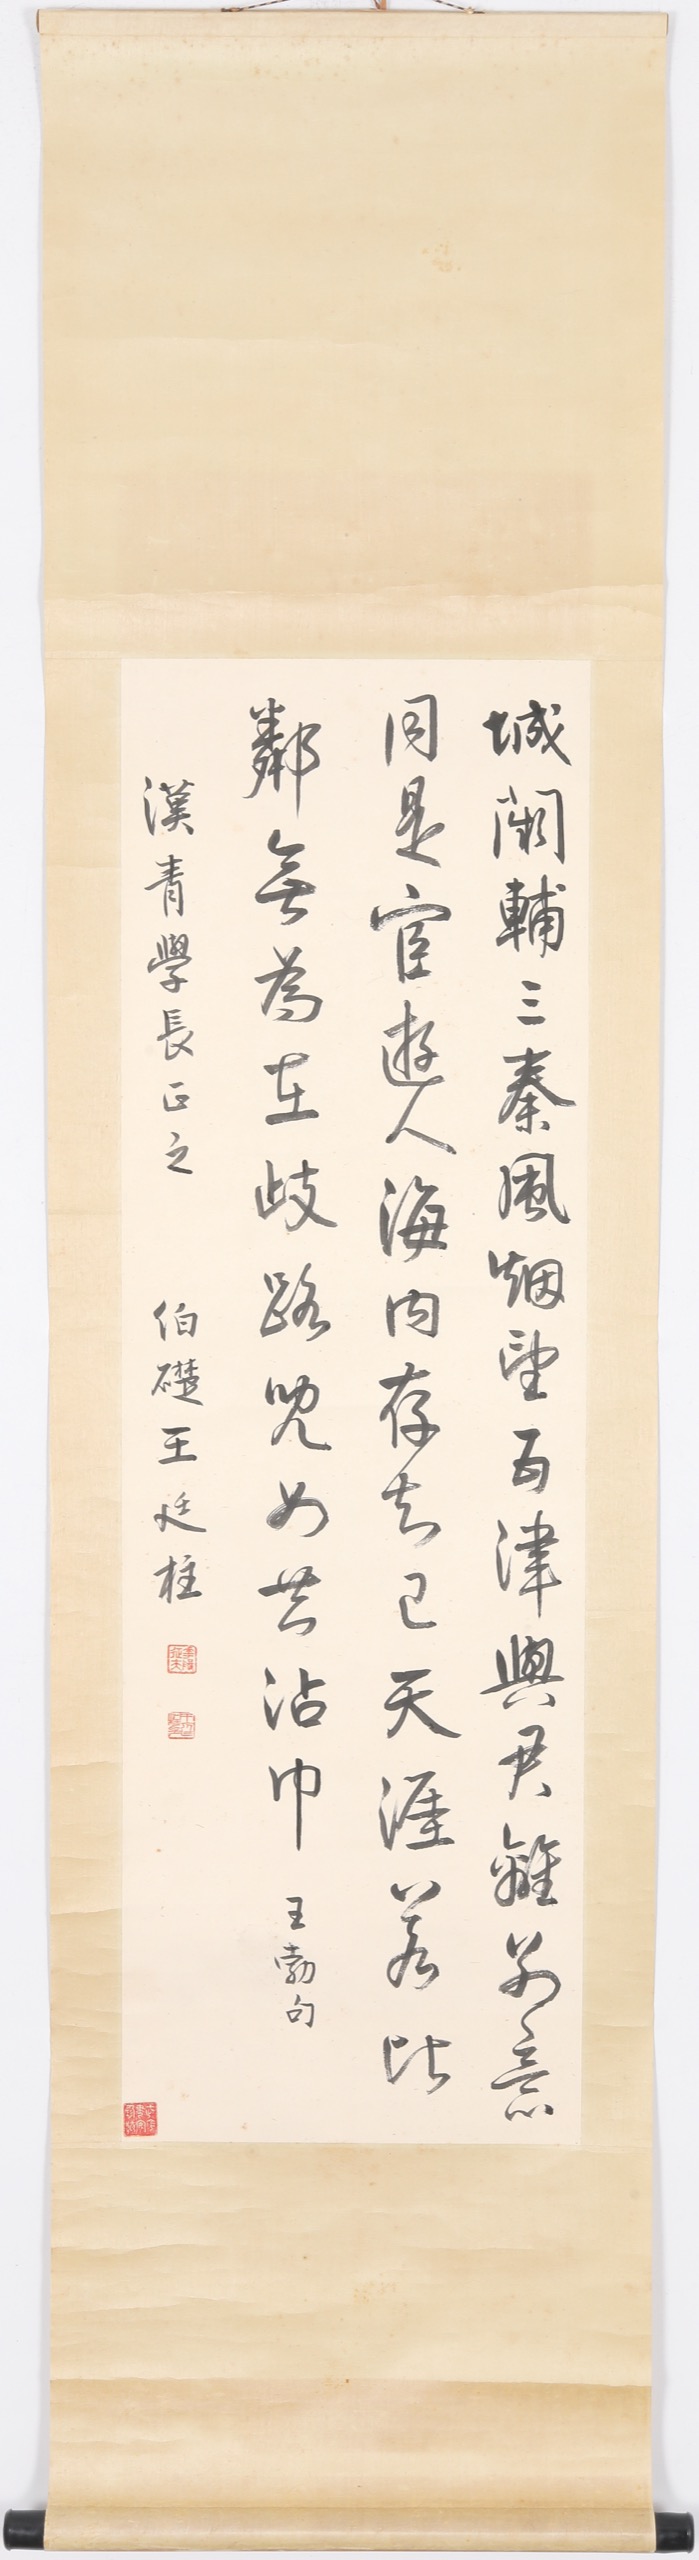 城闕輔三秦風烟望五津與君離別意
同是宦遊人海內存知己天涯若比
鄰無為在歧路兒女共沾巾 王勃句
漢青學長正之 伯礎王廷柱